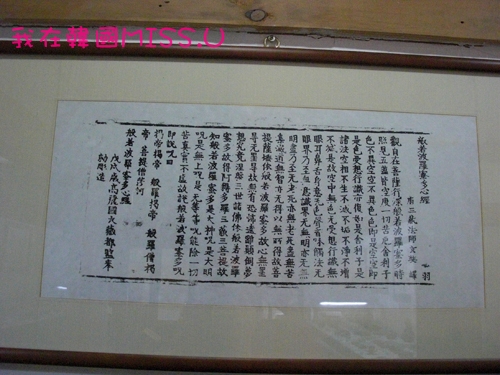 我在韓國MISS.U
般若波羅蜜多心經
唐三藏法師玄奘譯
羽
觀自在菩薩行深般若波羅蜜多時
照見五蘊皆空度一切苦厄舍利子
色不異空空不異色色即是空空即
是色受想行識亦復如是舍利子是
諸法空相不生不滅不垢不淨不增
不減是故空中無色無受想行識無
眼耳鼻舌身意無色聲香味觸法無
眼界乃至無意識界無無明亦無無
明盡乃至無老死亦無老死盡無苦
集滅道無智亦無得以無所得故菩
提薩埵依般若波羅蜜多故心無罣
礙無罣礙故無有恐怖遠離顛倒夢
想究竟涅槃三世諸佛依般若波羅
蜜多故得阿耨多羅三藐三菩提故
知般若波羅蜜多是大神呪是大明
呪是無上呪是無等等呪能除一切
苦真實不虛故說般若波羅蜜多呪
即說呪曰
揭帝揭帝 般羅揭帝 般羅僧揭
帝 菩提僧莎訶
般若波羅蜜多心經
戊戌歲高麗國大藏都監奉
勑雕造